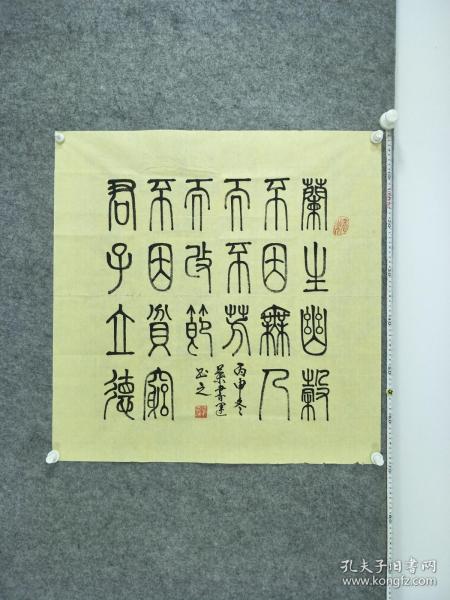 蘭生幽穀
不因無人
而不芳
君子立德
不因貧窮
而改節
丙申冬
葉書運
書之
孔夫子旧书网
www.kongfz.com